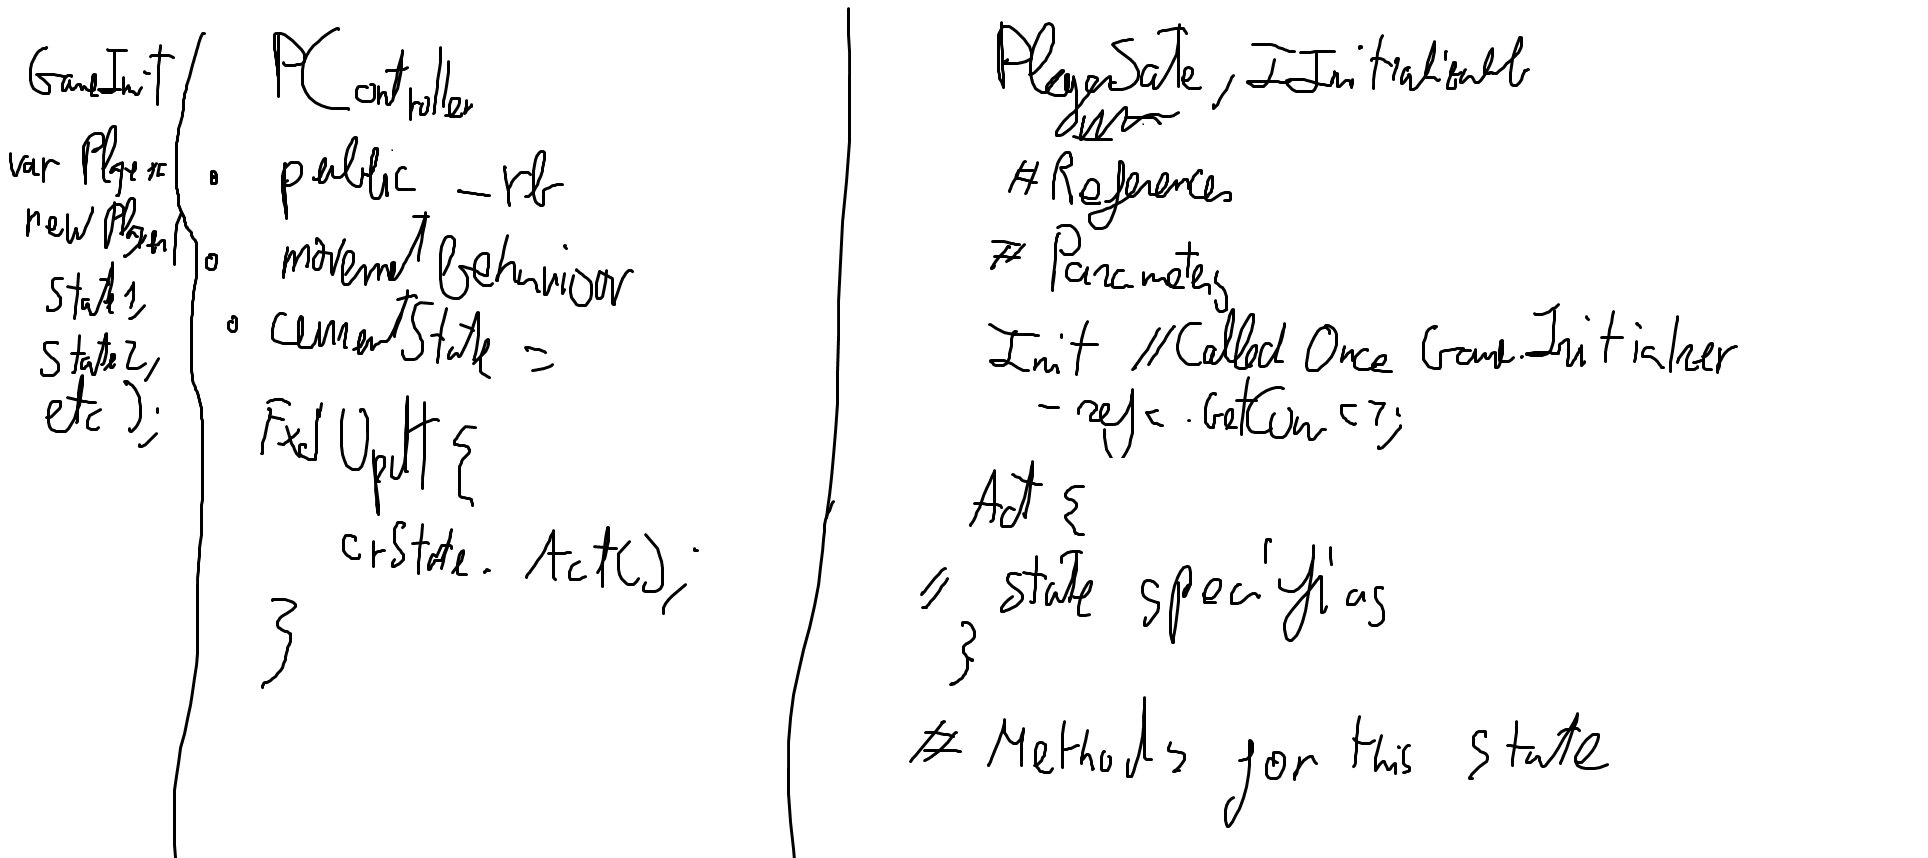 GameInit
var Player =
new Player(
State1,
State2,
etc );
PController
public _rb
movementBehaviour
currentState =
FxdUpdt {
crState. Act();
}
PlayerSate, IInitializabl
# References
# Parameters
Init // Called Once Game.Initializer
- ref< .GetCom<>;
Act {
// state specifias
}
# Methods for this state